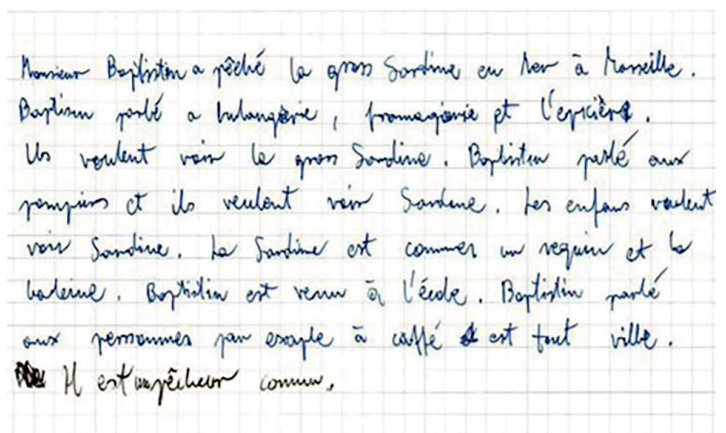 Monsieur Baptistin a pêché la gross Sardine en Mer à Marseille.
Baptisin parlé a bulangèrie, fromagierie et l'epicière.
Ils voulent voir la gross Sardine. Baptistin parlé aux
pompiers et ils veulent voir Sardine. Les enfans voulent
voir Sardine. La Sardine est commes un requin et la
baleine. Baptistin est venu à l'école. Baptistin parlé
aux personnes par exaple à caffé est tout ville.
Il est un pêcheur connu.